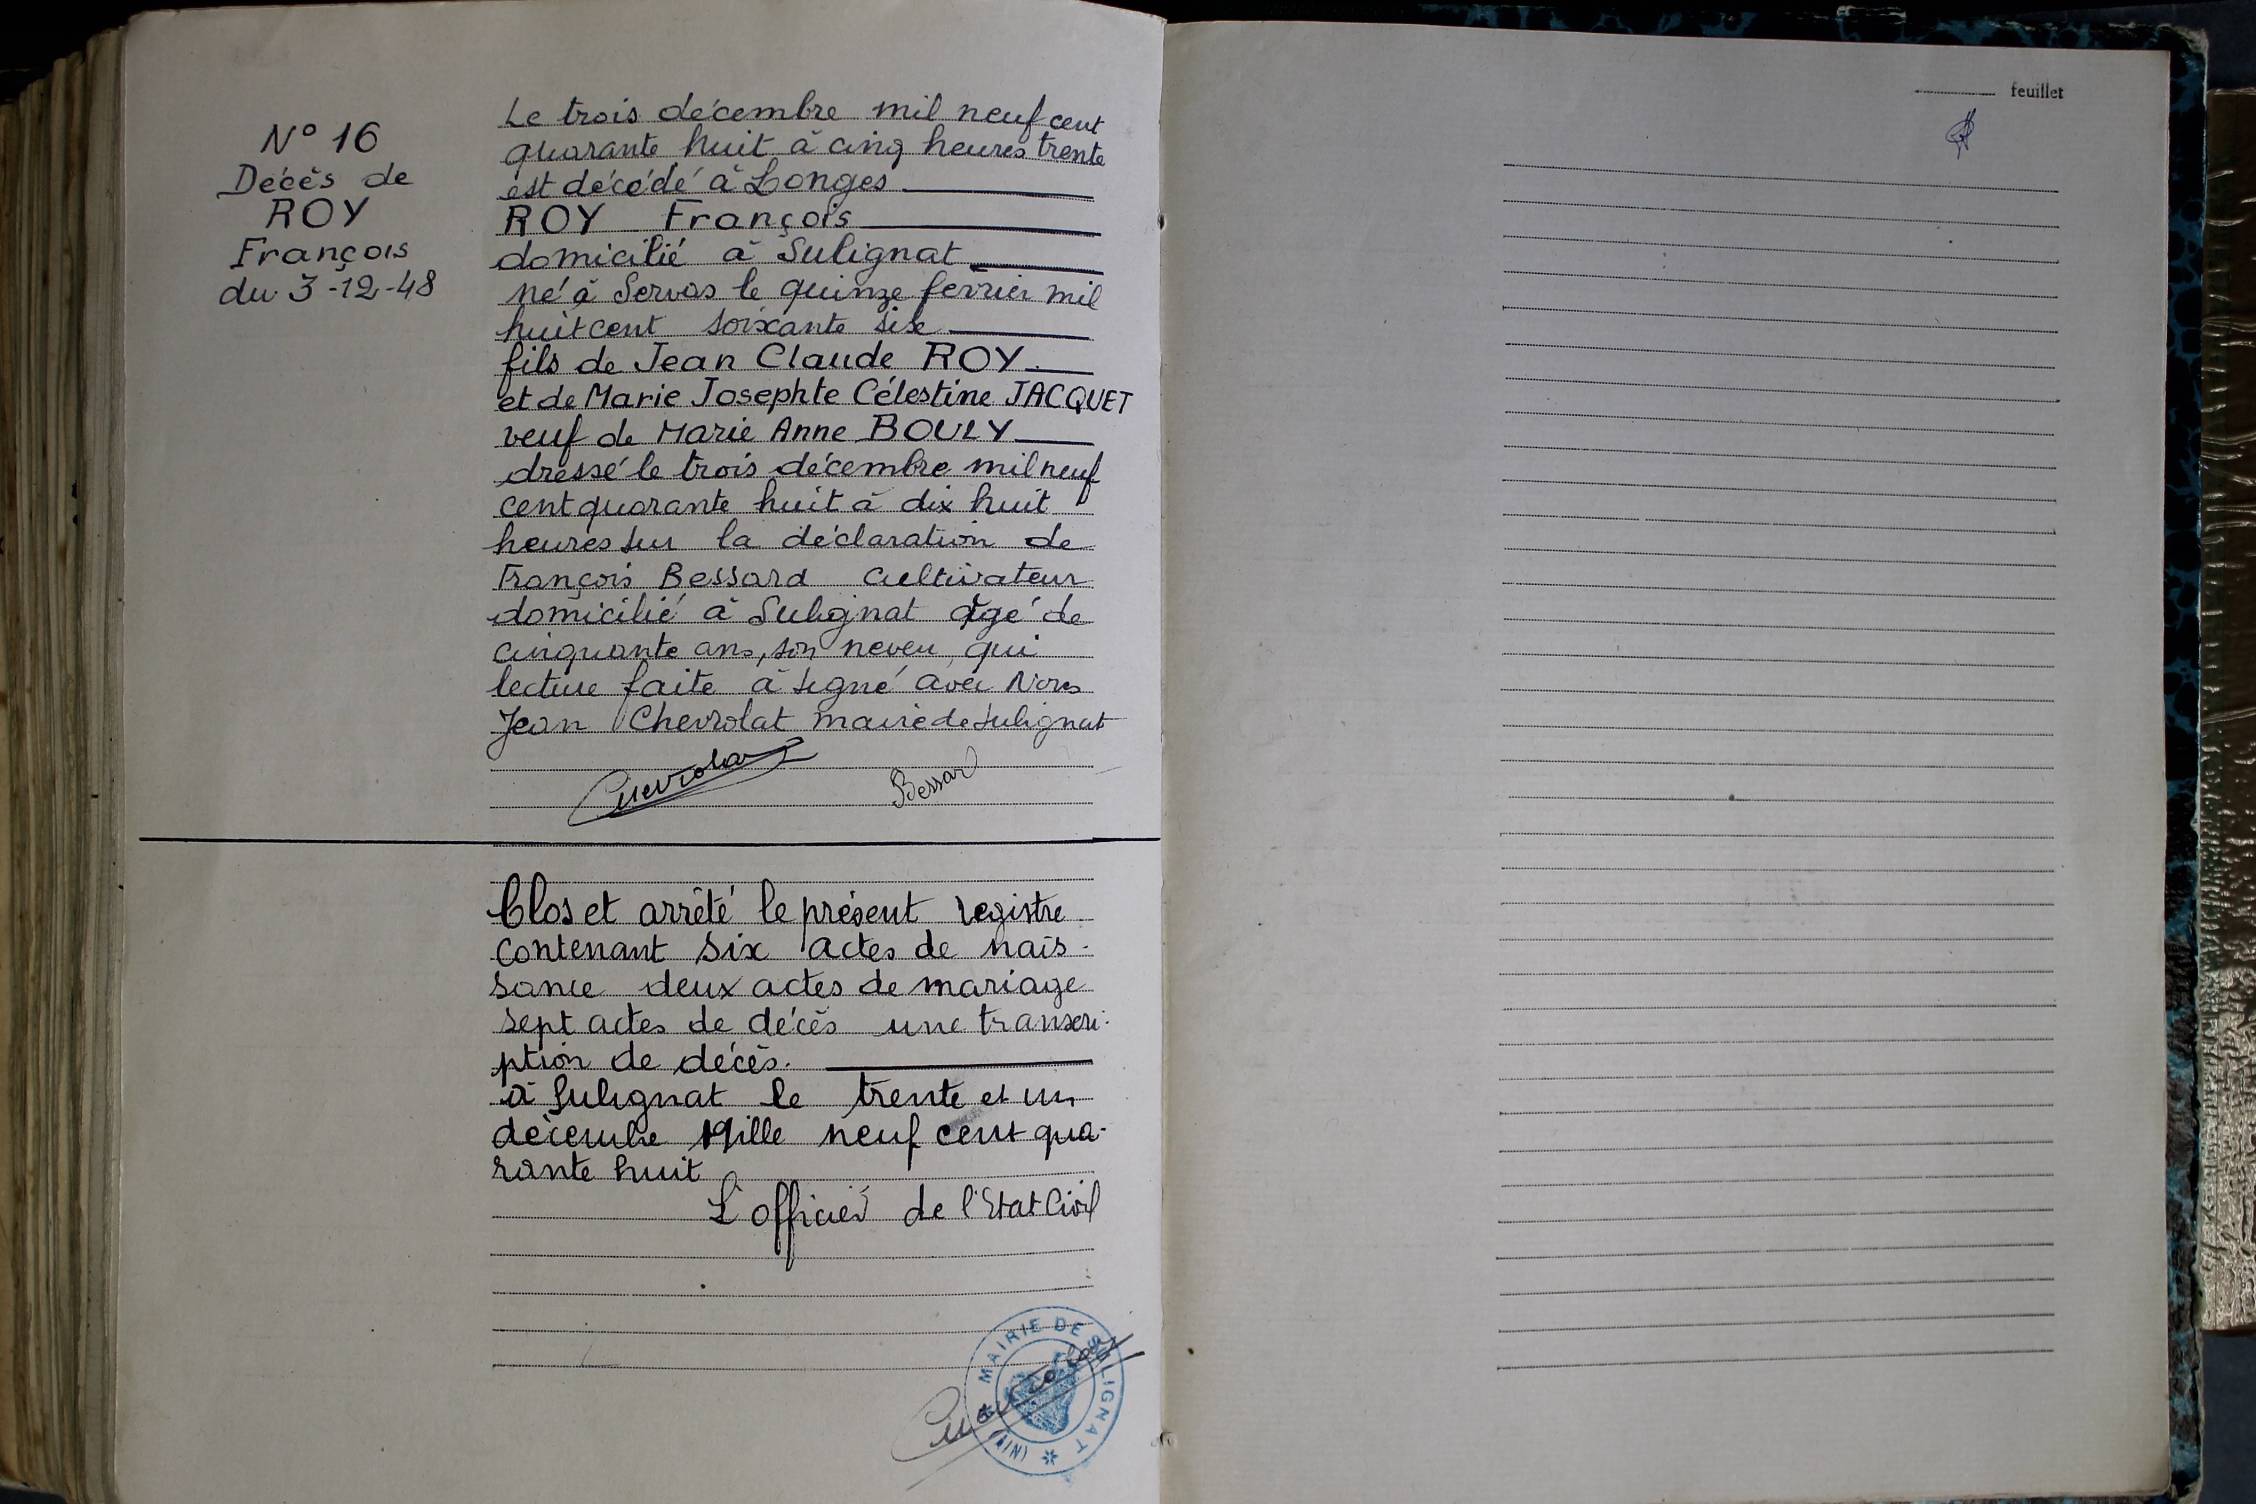 N° 16
Décès de
ROY
François
du 3-12-48
Le trois décembre mil neuf cent
quarante huit à cinq heures trente
est décédé à Longes
ROY François
domicilié à Sulignat
né à Servas le quinze février mil
huit cent soixante six
fils de Jean Claude ROY
et de Marie Josephte Célestine JACQUET
veuf de Marie Anne BOULY
dressé le trois décembre mil neuf
cent quarante huit à dix huit
heures sur la déclaration de
François Bessard cultivateur
domicilié à Sulignat âgé de
cinquante ans, son neveu, qui
lecture faite à signé avec Nous
Jean Chevrolat maire de Sulignat
Chevrolat
Bessard
Clos et arrêté le présent registre
contenant six actes de nais-
sance deux actes de mariage
sept actes de décès une transcri-
ption de décès.
à Sulignat le trente et un
décembre Mille neuf cent qua-
rante huit
L'officier de l'Etat Civil
MAIRIE DE SULIGNAT
(AIN)
Chevrolat
feuillet